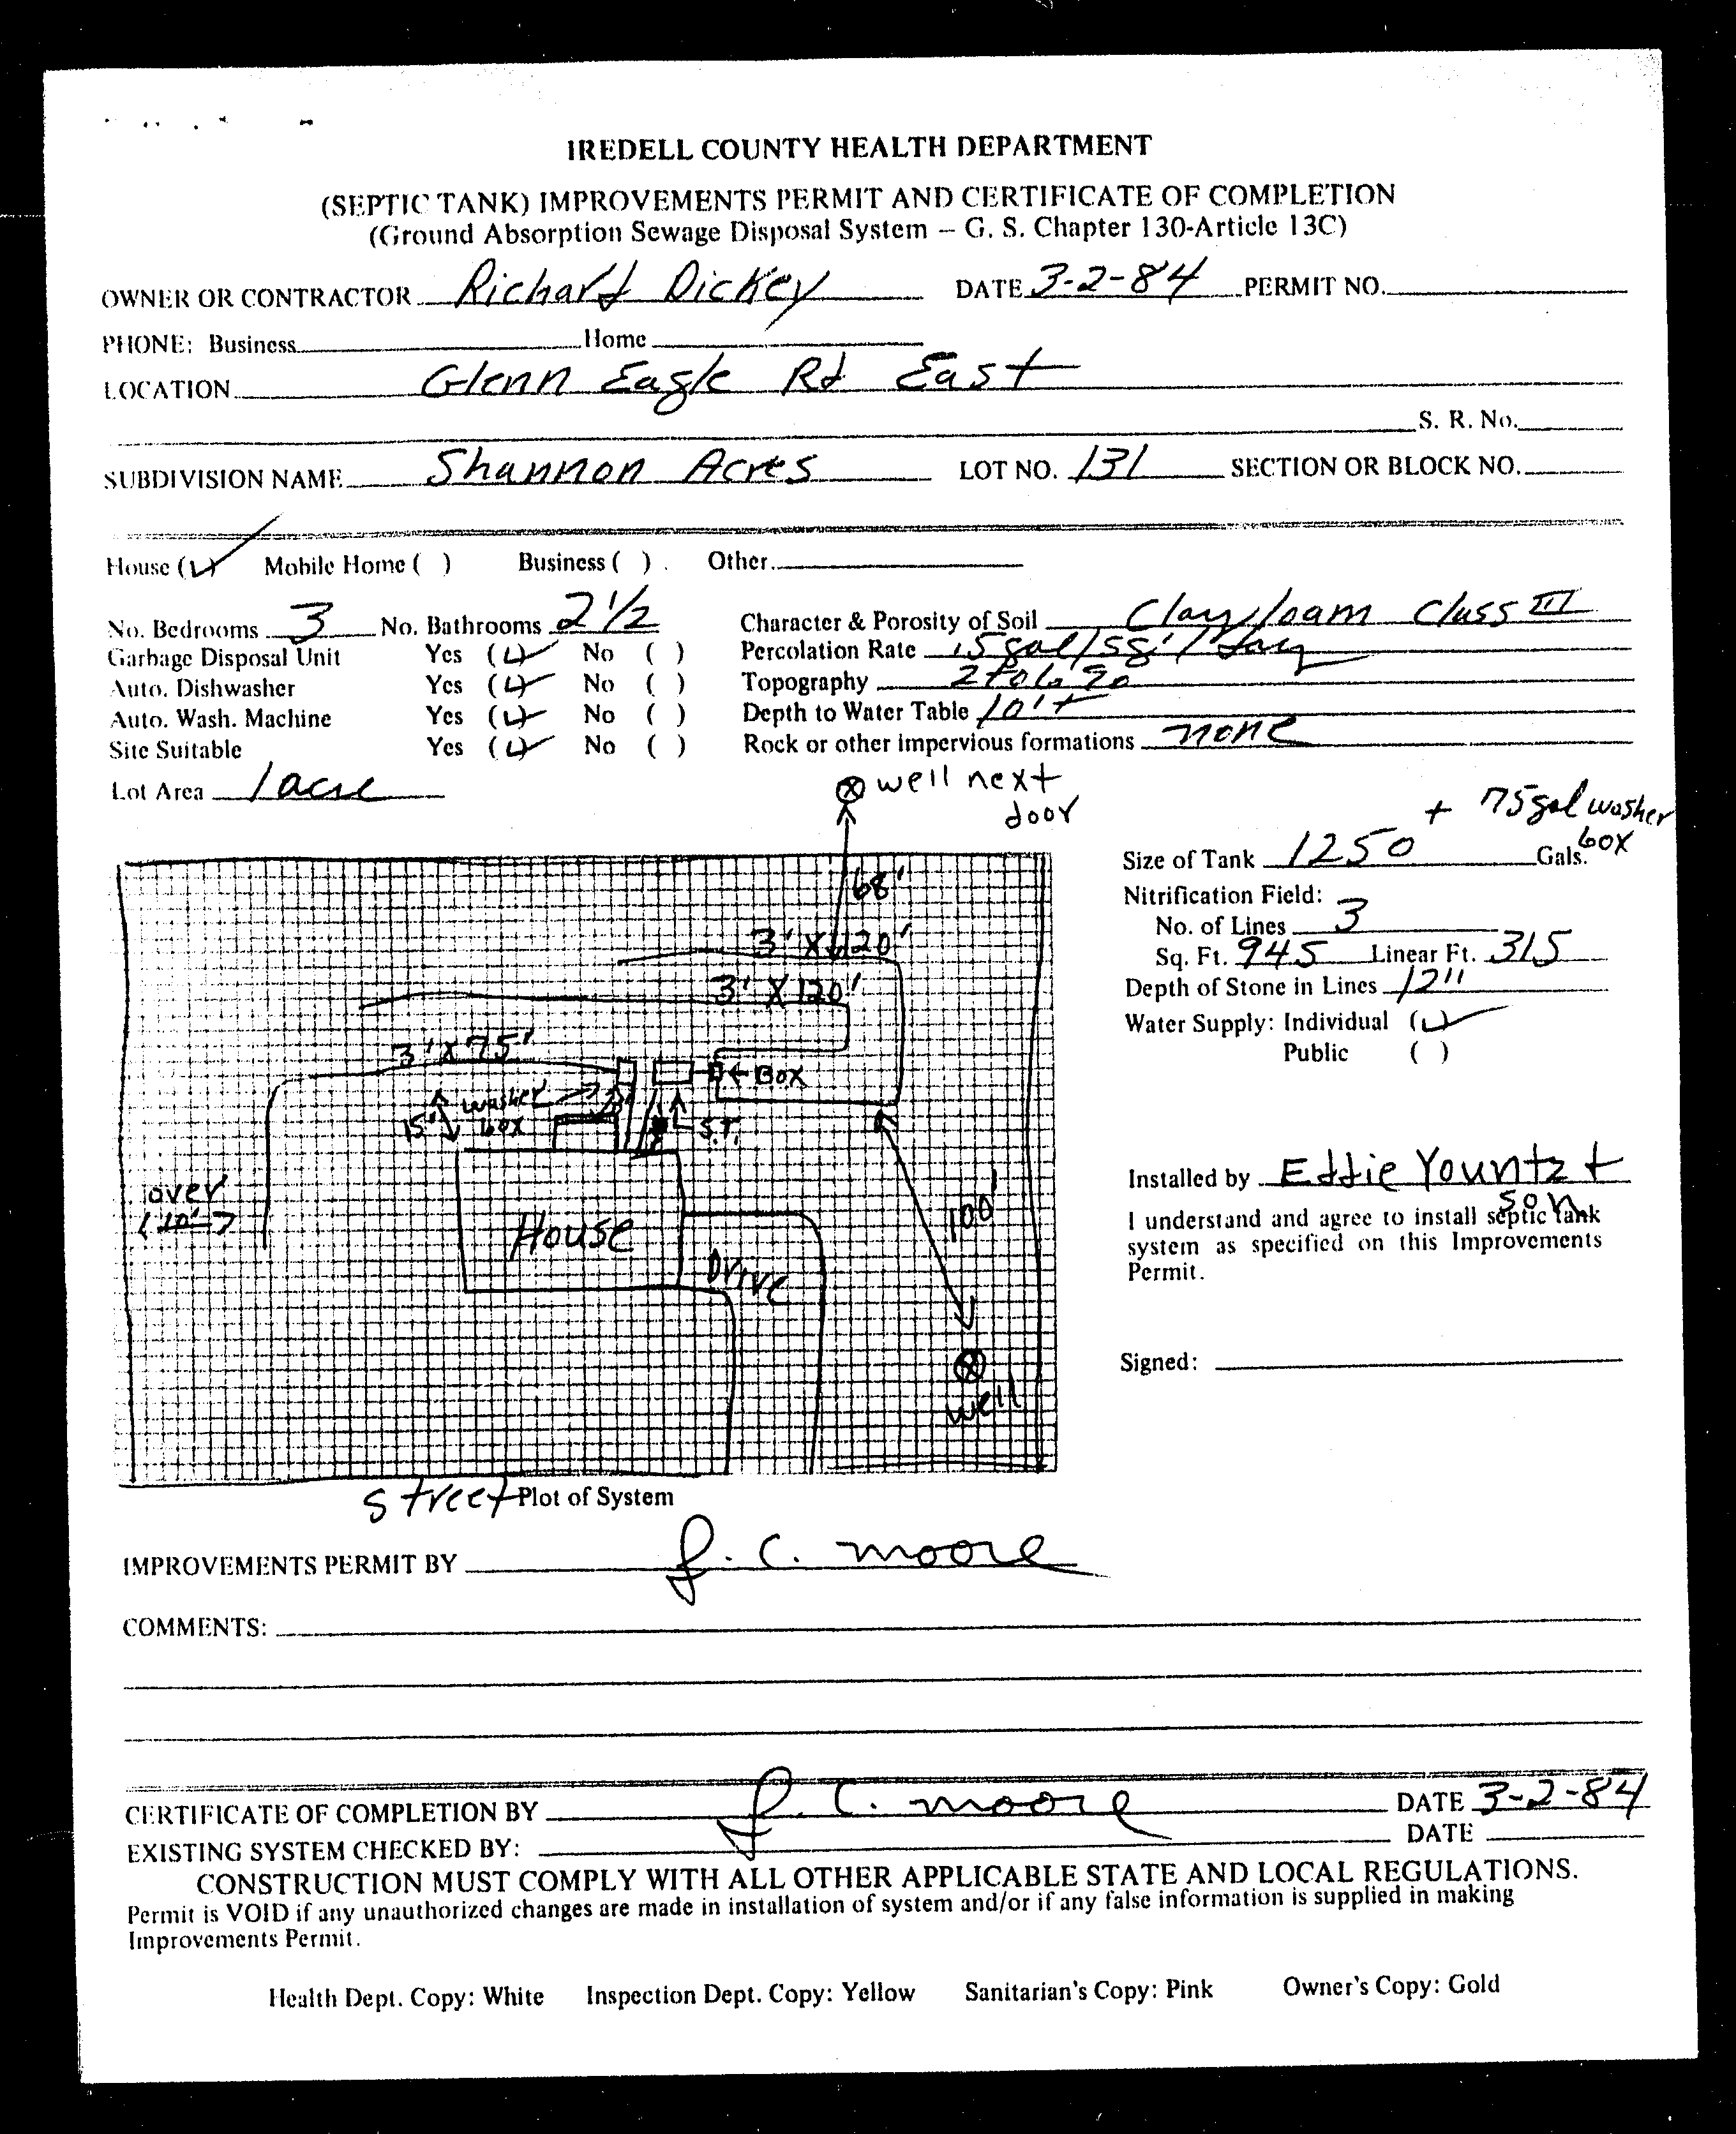 IREDELL COUNTY HEALTH DEPARTMENT
(SEPTIC TANK) IMPROVEMENTS PERMIT AND CERTIFICATE OF COMPLETION
(Ground Absorption Sewage Disposal System – G. S. Chapter 130-Article 13C)
OWNER OR CONTRACTOR Richard Dickey DATE 3-2-84 PERMIT NO.
PHONE: Business Home
LOCATION Glenn Eagle Rd East
S. R. No.
SUBDIVISION NAME Shannon Acres LOT NO. 131 SECTION OR BLOCK NO.
House (✓) Mobile Home ( ) Business ( ) Other
No. Bedrooms 3 No. Bathrooms 2 1/2 Character & Porosity of Soil Clay loam Class III
Garbage Disposal Unit Yes (✓) No ( ) Percolation Rate .5 gal/sq'/day
Auto. Dishwasher Yes (✓) No ( ) Topography 2 to 6 %
Auto. Wash. Machine Yes (✓) No ( ) Depth to Water Table 10'+
Site Suitable Yes (✓) No ( ) Rock or other impervious formations none
Lot Area 1 acre
well next
door
+ 75 gal washer
box
Size of Tank 1250 Gals.
Nitrification Field:
No. of Lines 3
Sq. Ft. 945 Linear Ft. 315
Depth of Stone in Lines 12"
Water Supply: Individual (✓)
Public ( )
68'
3' X 120'
3' X 120'
3' X 75'
← Box
washer
box
15'
S.T.
over
10'
House
Drive
100'
well
Installed by Eddie Yountz +
son
I understand and agree to install septic tank
system as specified on this Improvements
Permit.
Signed:
street Plot of System
IMPROVEMENTS PERMIT BY J. C. Moore
COMMENTS:
CERTIFICATE OF COMPLETION BY J. C. Moore DATE 3-2-84
EXISTING SYSTEM CHECKED BY: DATE
CONSTRUCTION MUST COMPLY WITH ALL OTHER APPLICABLE STATE AND LOCAL REGULATIONS.
Permit is VOID if any unauthorized changes are made in installation of system and/or if any false information is supplied in making
Improvements Permit.
Health Dept. Copy: White Inspection Dept. Copy: Yellow Sanitarian's Copy: Pink Owner's Copy: Gold